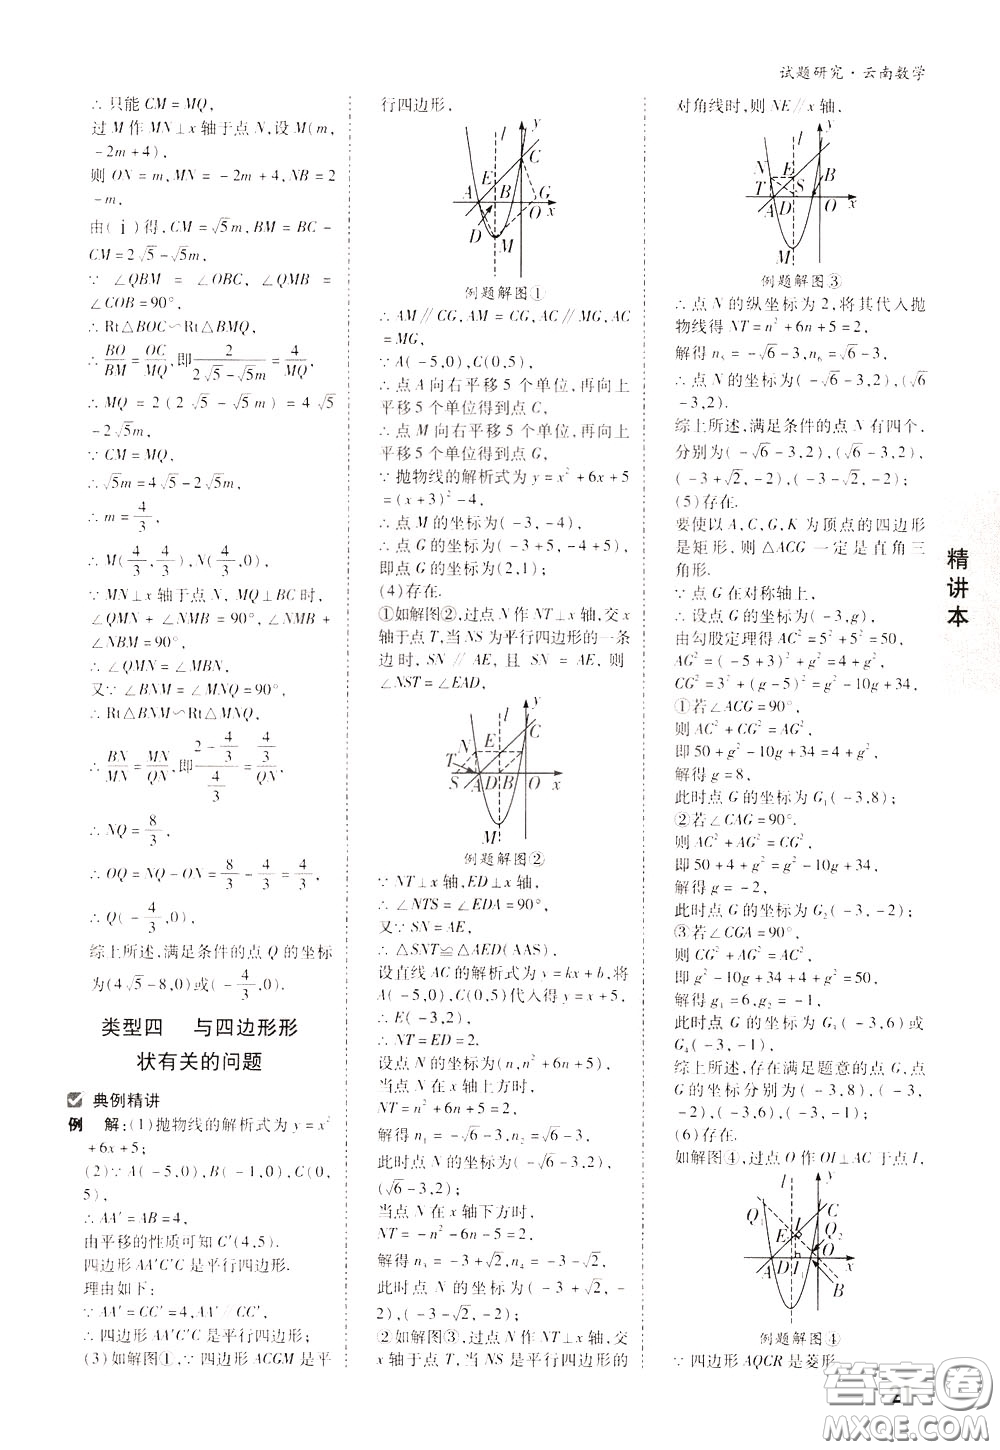 试题研究·云南数学
∴ 只能 CM = MQ,
过 M 作 MN⊥x 轴于点 N,设 M(m,
-2m+4),
则 ON = m,MN = -2m+4,NB = 2
-m,
由(ⅰ)得,CM = √5m,BM = BC -
CM = 2√5 - √5m,
∵ ∠QBM = ∠OBC, ∠QMB =
∠COB = 90°,
∴ Rt△BOC∽Rt△BMQ,
∴ BO/BM = OC/MQ,即 2/(2√5-√5m) = 4/MQ,
∴ MQ = 2(2√5 - √5m) = 4√5
-2√5m,
∵ CM = MQ,
∴ √5m = 4√5 - 2√5m,
∴ m = 4/3,
∴ M(4/3,4/3),N(4/3,0),
∵ MN⊥x 轴于点 N,MQ⊥BC 时,
∠QMN + ∠NMB = 90°, ∠MBN +
∠NBM = 90°,
∴ ∠QMN = ∠MBN,
又∵ ∠BNM = ∠MNQ = 90°,
∴ Rt△BNM∽Rt△MNQ,
∴ BN/MN = MN/QN,即 (2-4/3)/(4/3) = (4/3)/QN,
∴ NQ = 8/3,
∴ OQ = NQ - ON = 8/3 - 4/3 = 4/3,
∴ Q(-4/3,0).
综上所述,满足条件的点 Q 的坐标
为(4√5-8,0)或(-4/3,0).
类型四 与四边形形
状有关的问题
典例精讲
例 解:(1)抛物线的解析式为 y = x²
+6x+5;
(2)∵ A(-5,0),B(-1,0),C(0,
5),
∴ AA′ = AB = 4,
由平移的性质可知 C′(4,5).
四边形 AA′C′C 是平行四边形.
理由如下:
∵ AA′ = CC′ = 4,AA′∥CC′,
∴ 四边形 AA′C′C 是平行四边形;
(3)如解图①,∵ 四边形 ACGM 是平
行四边形,
y
l
C
E
A
B
G
O
x
D
M
例题解图①
∴ AM∥CG,AM = CG,AC∥MG,AC
= MG,
∵ A(-5,0),C(0,5),
∴ 点 A 向右平移 5 个单位,再向上
平移 5 个单位得到点 C,
∴ 点 M 向右平移 5 个单位,再向上
平移 5 个单位得到点 G,
∵ 抛物线的解析式为 y = x²+6x+5
= (x+3)²-4,
∴ 点 M 的坐标为(-3,-4),
∴ 点 G 的坐标为(-3+5,-4+5),
即点 G 的坐标为(2,1);
(4)存在.
①如解图②,过点 N 作 NT⊥x 轴,交 x
轴于点 T,当 NS 为平行四边形的一条
边时, SN∥AE, 且 SN = AE, 则
∠NST = ∠EAD,
y
l
C
N
E
T
S
A
D
B
O
x
M
例题解图②
∵ NT⊥x 轴,ED⊥x 轴,
∴ ∠NTS = ∠EDA = 90°,
又∵ SN = AE,
∴ △SNT≌△AED(AAS),
设直线 AC 的解析式为 y = kx+b,将
A(-5,0),C(0,5)代入得 y = x+5,
∴ E(-3,2),
∴ NT = ED = 2,
设点 N 的坐标为(n,n²+6n+5),
当点 N 在 x 轴上方时,
NT = n²+6n+5 = 2,
解得 n₁ = -√6-3,n₂ = √6-3,
此时点 N 的坐标为(-√6-3,2),
(√6-3,2);
当点 N 在 x 轴下方时,
NT = -n²-6n-5 = 2,
解得 n₃ = -3+√2,n₄ = -3-√2,
此时点 N 的坐标为(-3+√2,
-2),(-3-√2,-2);
②如解图③,过点 N 作 NT⊥x 轴,交
x 轴于点 T,当 NS 是平行四边形的
对角线时,则 NE∥x 轴,
y
l
N
E
B
T
S
A
D
O
x
M
例题解图③
∴ 点 N 的纵坐标为 2,将其代入抛
物线得 NT = n²+6n+5 = 2,
解得 n₅ = -√6-3,n₆ = √6-3,
∴ 点 N 的坐标为(-√6-3,2),(√6
-3,2).
综上所述,满足条件的点 N 有四个,
分别为(-√6-3,2),(√6-3,2),
(-3+√2,-2),(-3-√2,-2);
(5)存在.
要使以 A,C,G,K 为顶点的四边形
是矩形,则 △ACG 一定是直角三
角形.
∵ 点 G 在对称轴上,
∴ 设点 G 的坐标为(-3,g),
由勾股定理得 AC² = 5²+5² = 50,
AG² = (-5+3)²+g² = g²+4,
CG² = 3²+(g-5)² = g²-10g+34,
①若∠ACG = 90°,
则 AC²+CG² = AG²,
即 50+g²-10g+34 = g²+4,
解得 g = 8,
此时点 G 的坐标为 G₁(-3,8);
②若∠CAG = 90°,
则 AC²+AG² = CG²,
即 50+4+g² = g²-10g+34,
解得 g = -2,
此时点 G 的坐标为 G₂(-3,-2);
③若∠CGA = 90°,
则 CG²+AG² = AC²,
即 g²-10g+34+4+g² = 50,
解得 g₁ = 6,g₂ = -1,
此时点 G 的坐标为 G₃(-3,6)或
G₄(-3,-1),
综上所述,存在满足题意的点 G,点
G 的坐标分别为(-3,8),(-3,
-2),(-3,6),(-3,-1);
(6)存在.
如解图④,过点 O 作 OI⊥AC 于点 I,
y
l
Q
C
I
E
Q₂
O
A
D
I₁
x
B
例题解图④
∵ 四边形 AQCR 是菱形,
精讲本
答案圈